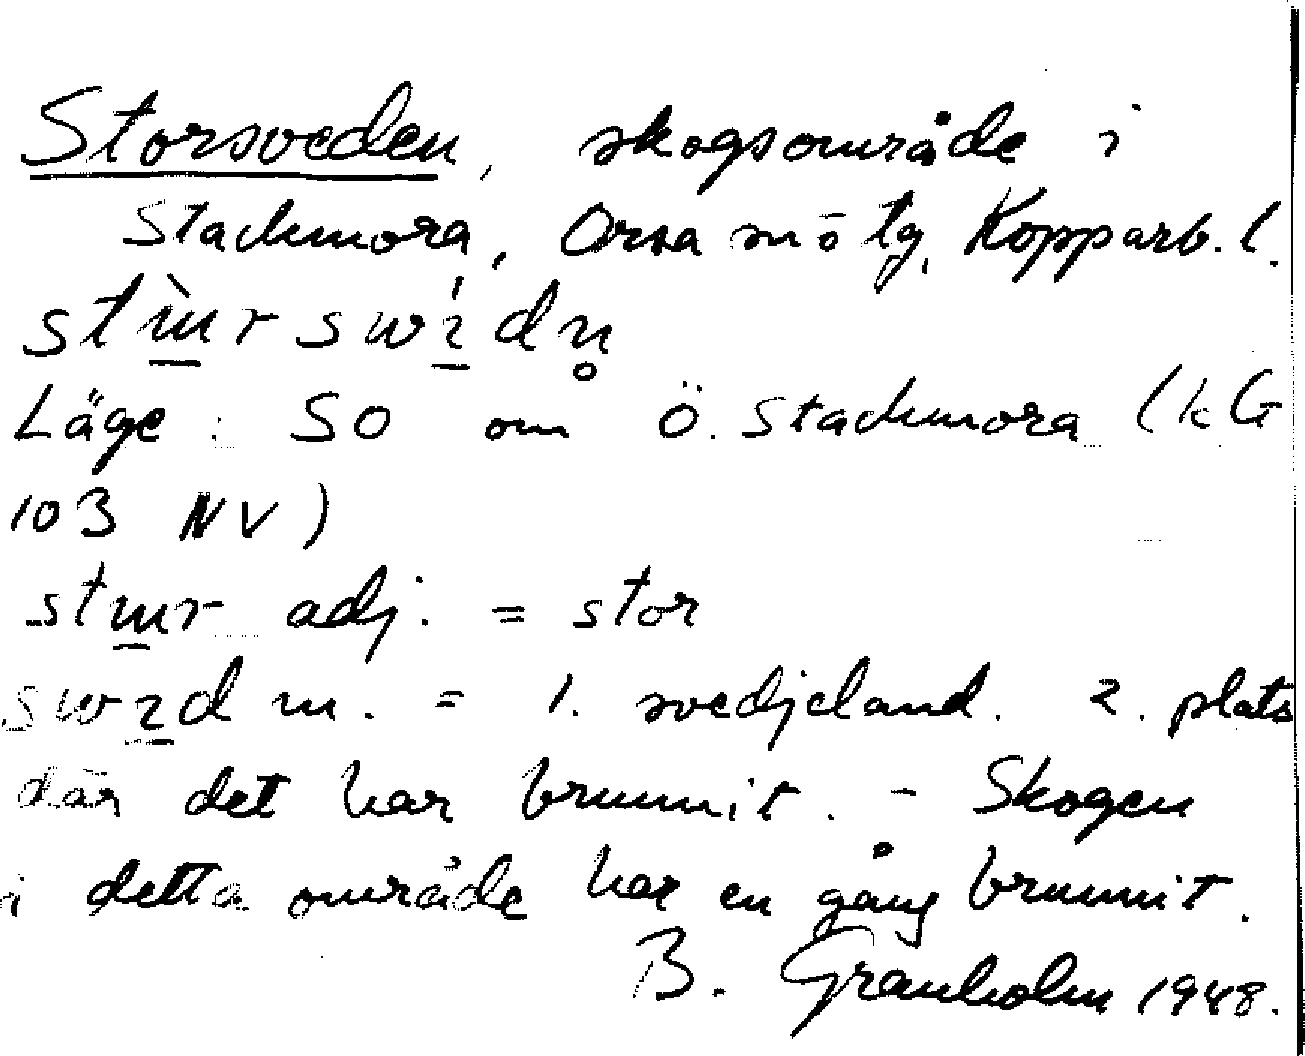 Storsveden, skogsområde i
Stackmora, Orsa sn ö tg, Kopparb. l.
Läge: SO om Ö. Stackmora (kG
103 NV)
adj. = stor
m. = 1. svedjeland. 2. plats
där det har brunnit. - Skogen
i detta område har en gång brunnit.
B. Granholm 1948.